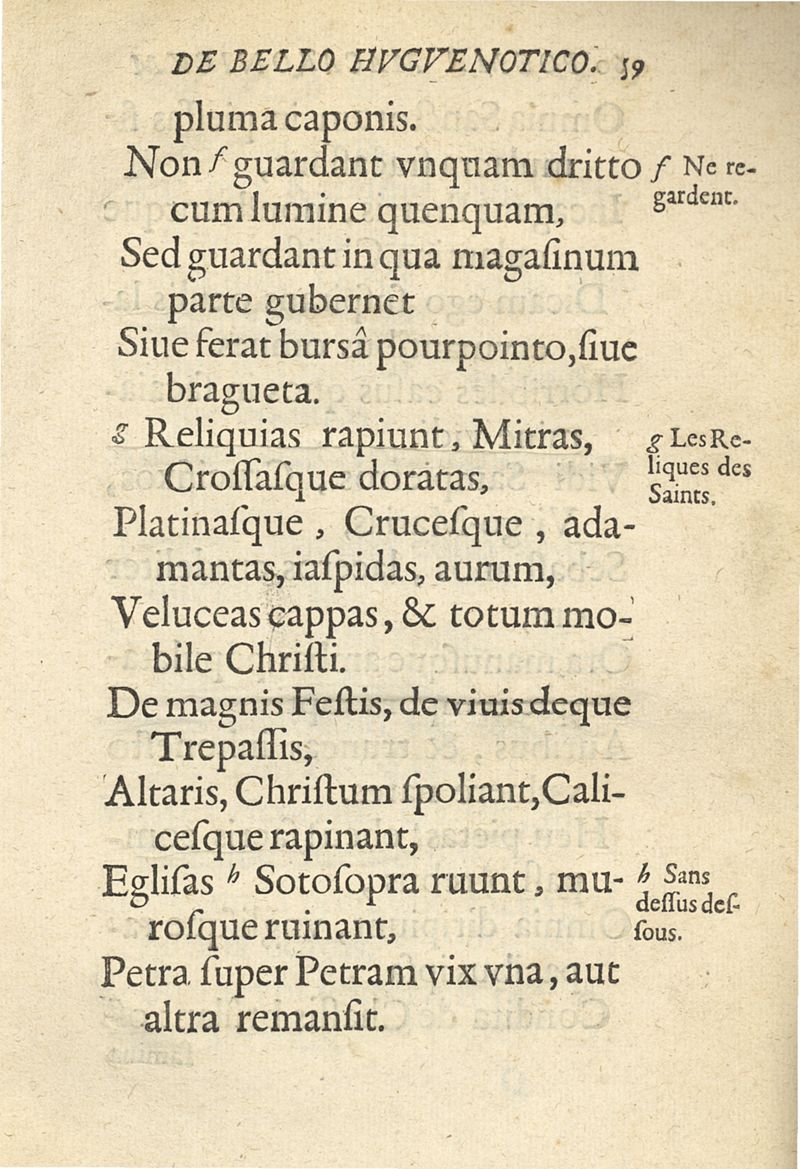 DE BELLO HVGVENOTICO. 59
pluma caponis.
Non f guardant vnquam dritto
cum lumine quenquam,
f Ne re-
gardent.
Sed guardant in qua magaſinum
parte gubernet
Siue ferat bursâ pourpointo, ſiue
bragueta.
g Reliquias rapiunt, Mitras,
Croſſaſque doratas,
g Les Re-
liques des
Saints.
Platinaſque, Cruceſque, ada-
mantas, iaſpidas, aurum,
Veluceas cappas, & totum mo-
bile Chriſti.
De magnis Feſtis, de viuis deque
Trepaſſis,
Altaris, Chriſtum ſpoliant, Cali-
ceſque rapinant,
Egliſas h Sotoſopra ruunt, mu-
roſque ruinant,
h Sans
deſſus deſ-
ſous.
Petra ſuper Petram vix vna, aut
altra remanſit.